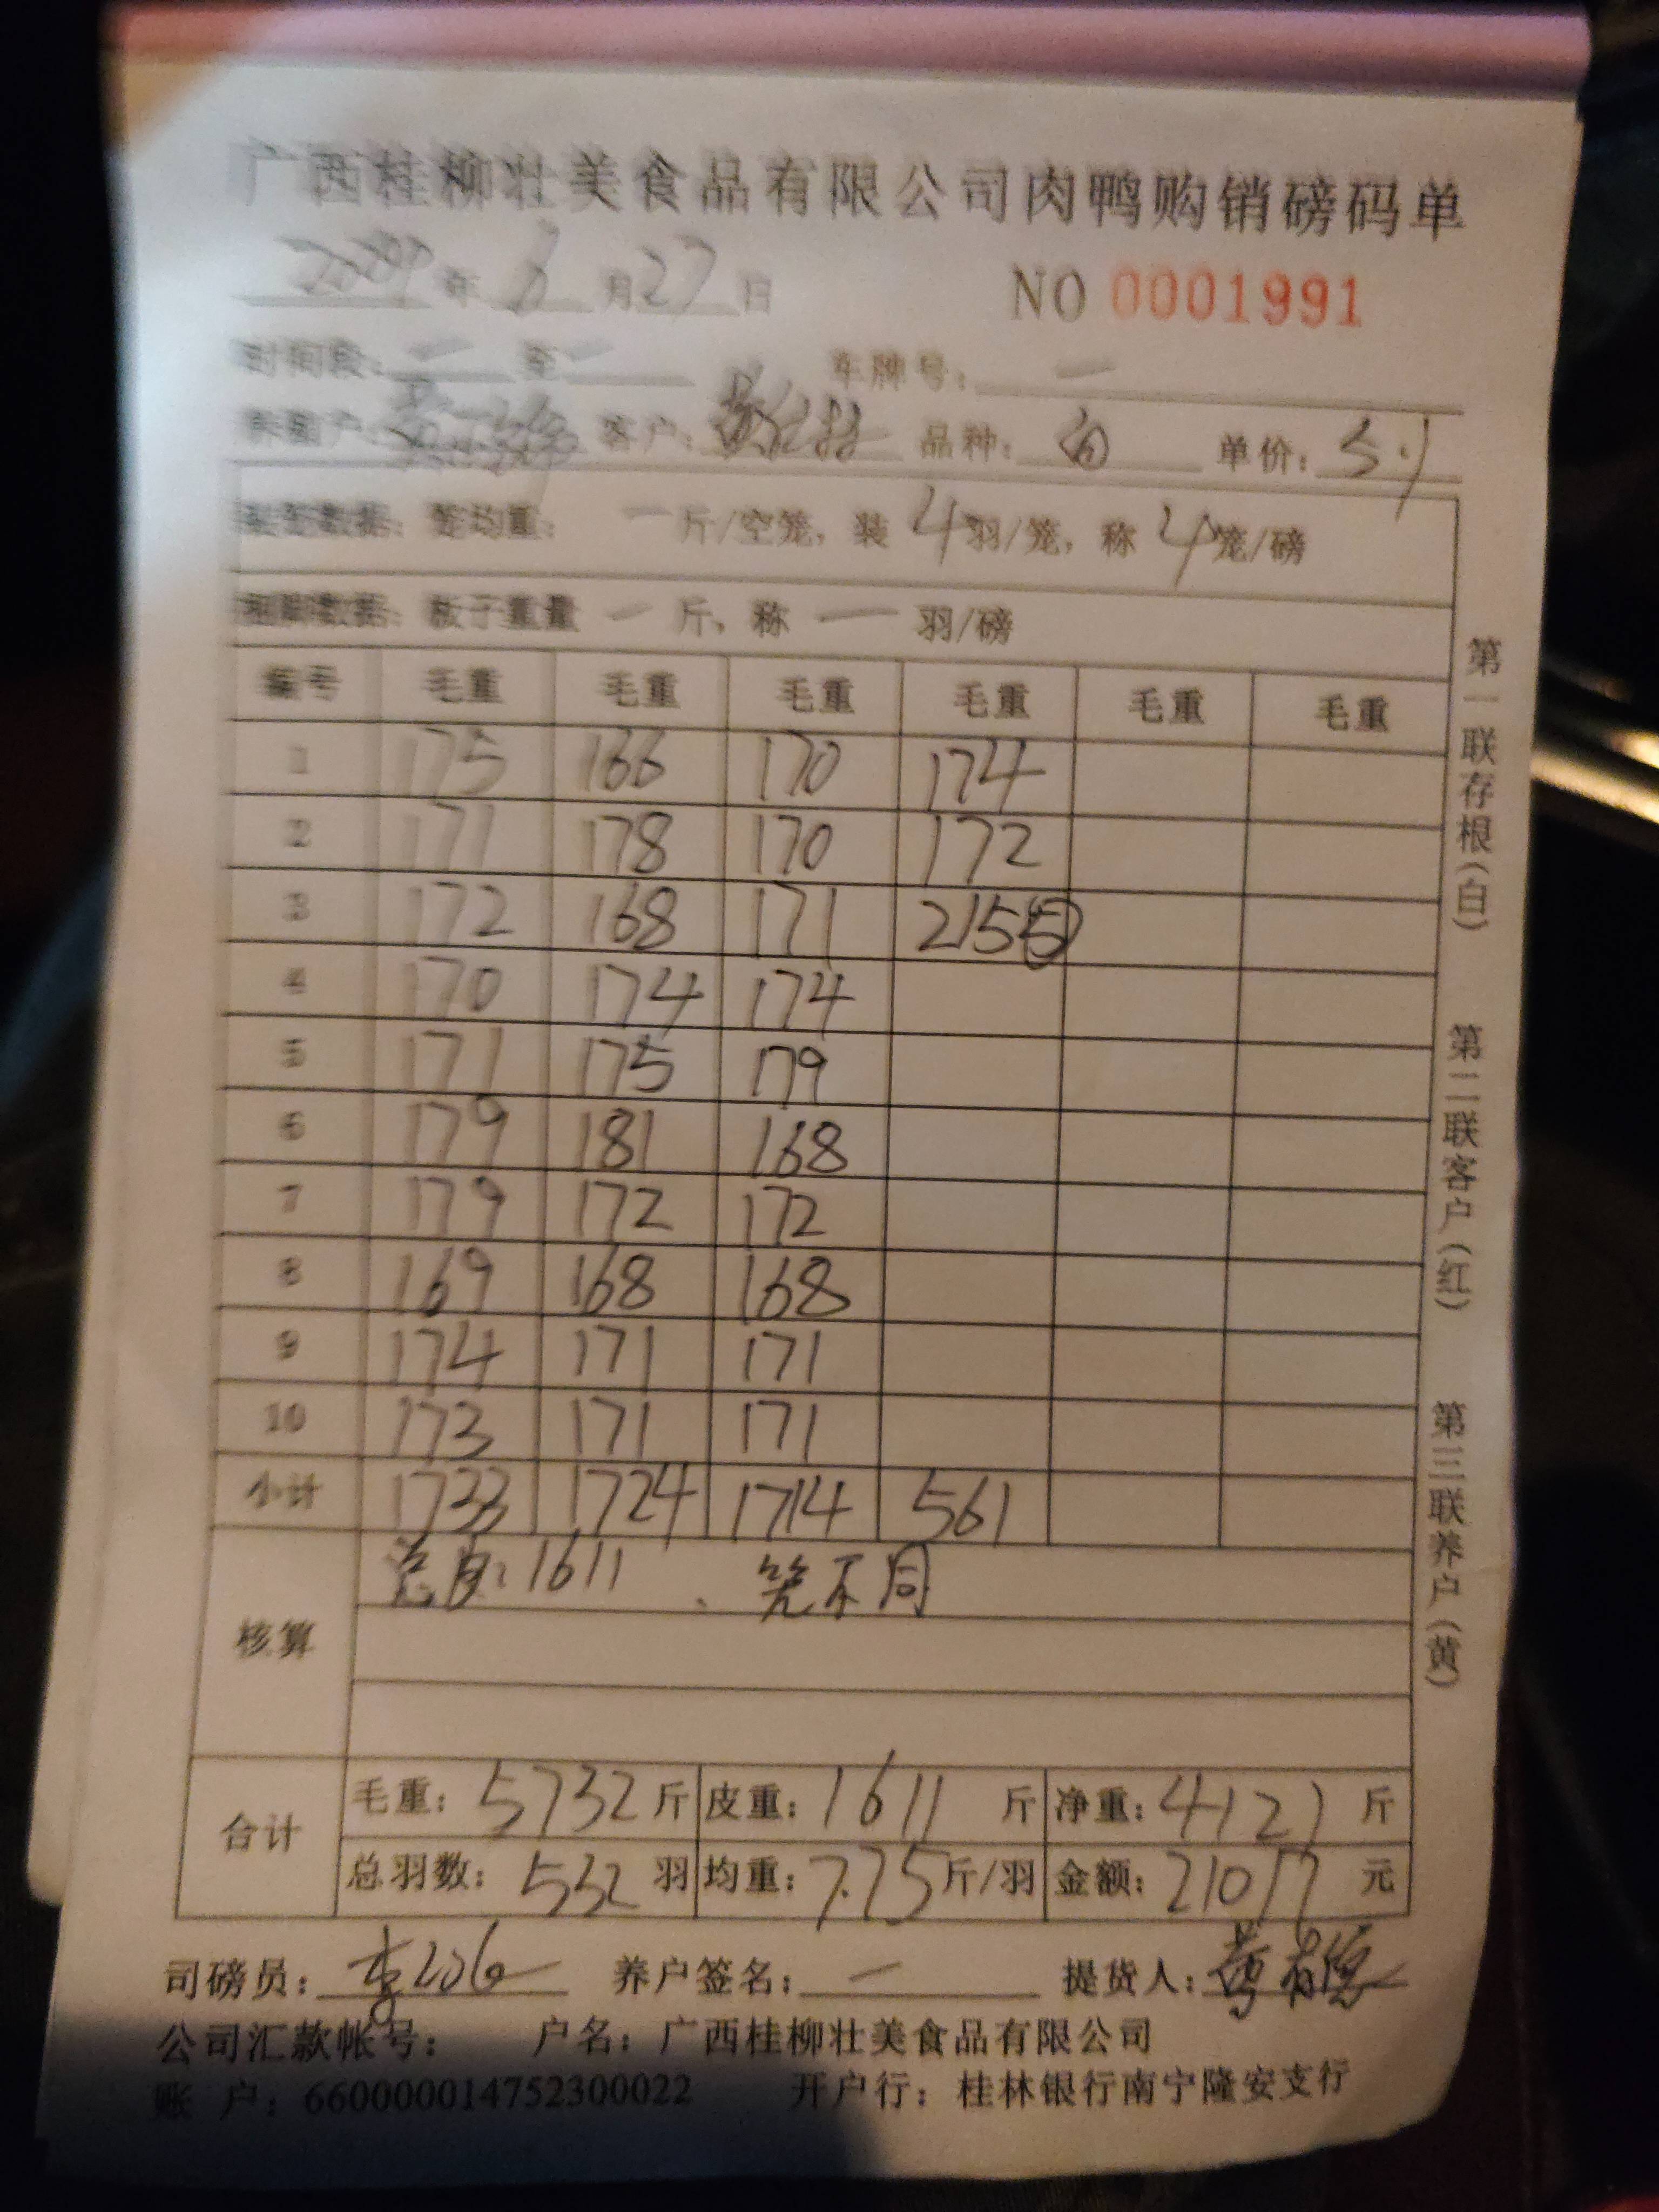 广西桂柳壮美食品有限公司肉鸭购销磅码单
年 月27日 NO 0001991
时间段: 一 至 一 车牌号: 一
客户: 品种: 白 单价: 5.1
装笼数据: 笼均重: 一 斤/空笼, 装 4 羽/笼, 称 4 笼/磅
数据: 板子重量 一 斤, 称 一 羽/磅
编号 毛重 毛重 毛重 毛重 毛重 毛重
1 175 166 170 174
2 171 178 170 172
3 172 168 171 215⑤
4 170 174 174
5 171 175 179
6 179 181 168
7 179 172 172
8 169 168 168
9 174 171 171
10 173 171 171
小计 1733 1724 1714 561
核算 总皮: 1611 、笼不同
合计 毛重: 5732 斤 皮重: 1611 斤 净重: 4121 斤
总羽数: 532 羽 均重: 7.75 斤/羽 金额: 21017 元
司磅员: 养户签名: 一 提货人:
公司汇款帐号: 户名: 广西桂柳壮美食品有限公司
账 户: 660000014752300022 开户行: 桂林银行南宁隆安支行
第一联存根(白)
第二联客户(红)
第三联养户(黄)